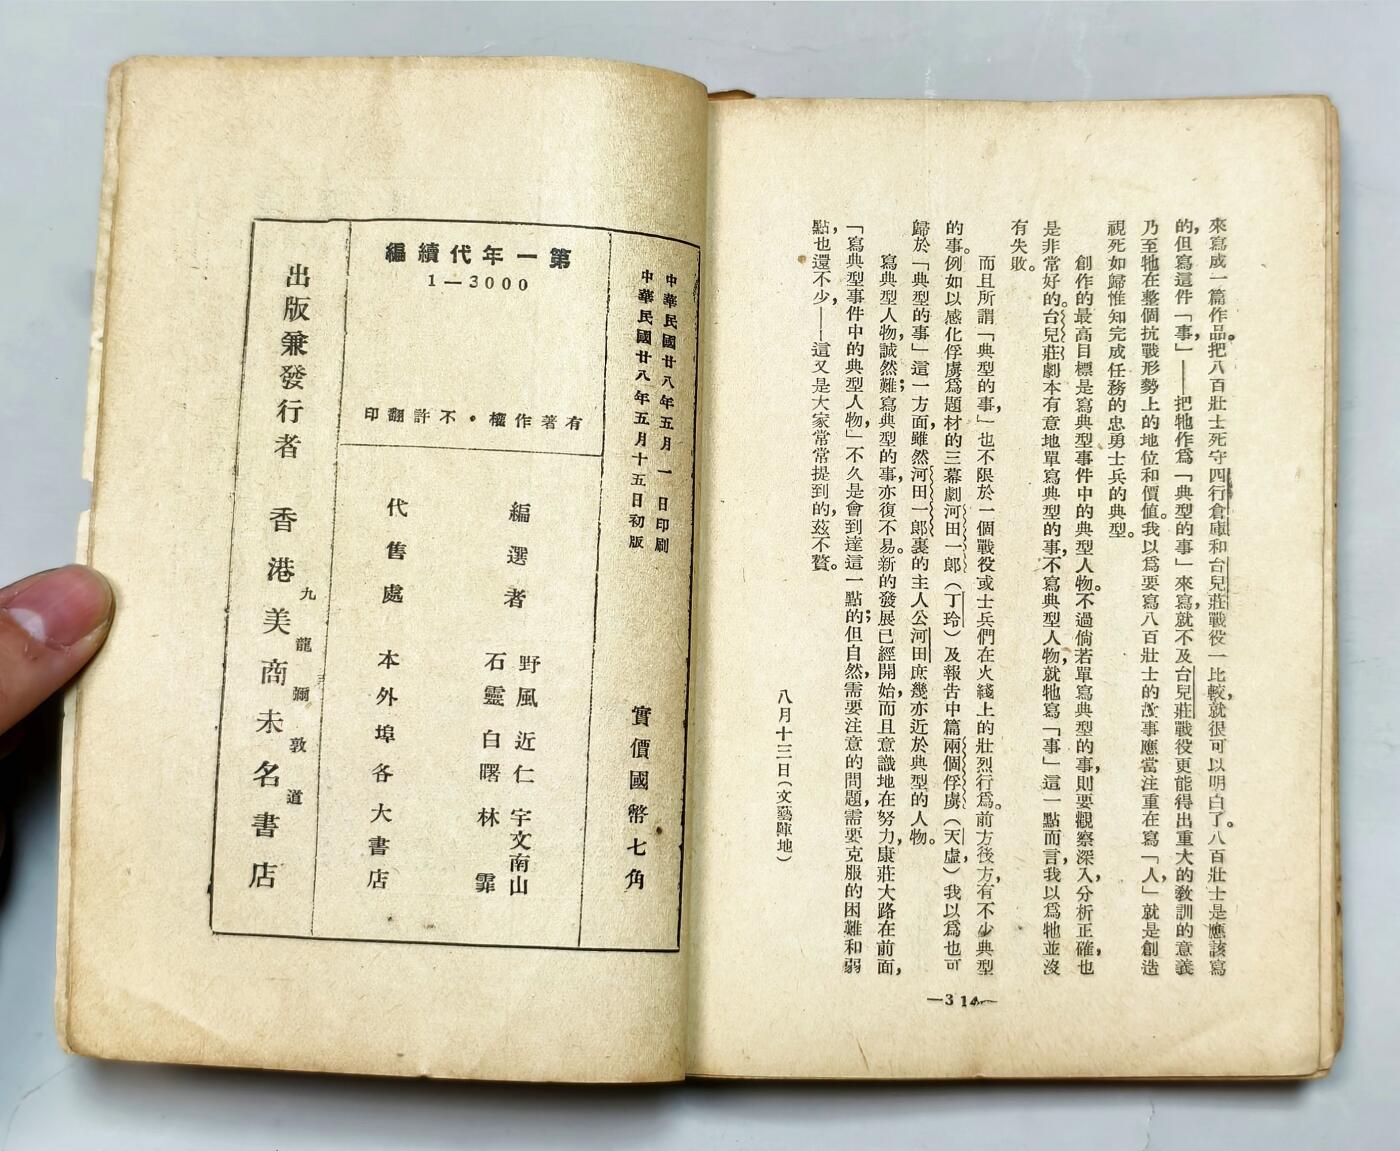 來寫成一篇作品。把八百壯士死守四行倉庫和台兒莊戰役一比較,就很可以明白了。八百壯士是應該寫
的,但寫這件「事」——把牠作爲「典型的事」來寫,就不及台兒莊戰役更能得出重大的教訓的意義
乃至牠在整個抗戰形勢上的地位和價值。我以爲要寫八百壯士的故事應當注重在寫「人」,就是創造
視死如歸惟知完成任務的忠勇士兵的典型。
創作的最高目標是寫典型事件中的典型人物。不過倘若單寫典型的事,則要觀察深入,分析正確,也
是非常好的。台兒莊劇本有意地單寫典型的事,不寫典型人物,就牠寫「事」這一點而言,我以爲牠並沒
有失敗。
而且所謂「典型的事」,也不限於一個戰役或士兵們在火綫上的壯烈行爲。前方後方,有不少典型
的事。例如以感化俘虜爲題材的三幕劇河田一郎(丁玲)及報告中篇兩個俘虜(天虛)我以爲也可
歸於「典型的事」這一方面,雖然河田一郎裏的主人公河田庶幾亦近於典型的人物。
寫典型人物,誠然難;寫典型的事,亦復不易。新的發展已經開始,而且意識地在努力,康莊大路在前面,
「寫典型事件中的典型人物」不久是會到達這一點的;但自然,需要注意的問題,需要克服的困難和弱
點,也還不少——這又是大家常常提到的,茲不贅。
八月十三日(文藝陣地)
—314—
中華民國廿八年五月一日印刷
中華民國廿八年五月十五日初版
實價國幣七角
第一年代續編
1—3000
有著作權・不許翻印
編選者
野風 近仁 宇文南山
石靈 白曙 林霏
代售處 本外埠各大書店
出版兼發行者 香港美商未名書店
九龍彌敦道